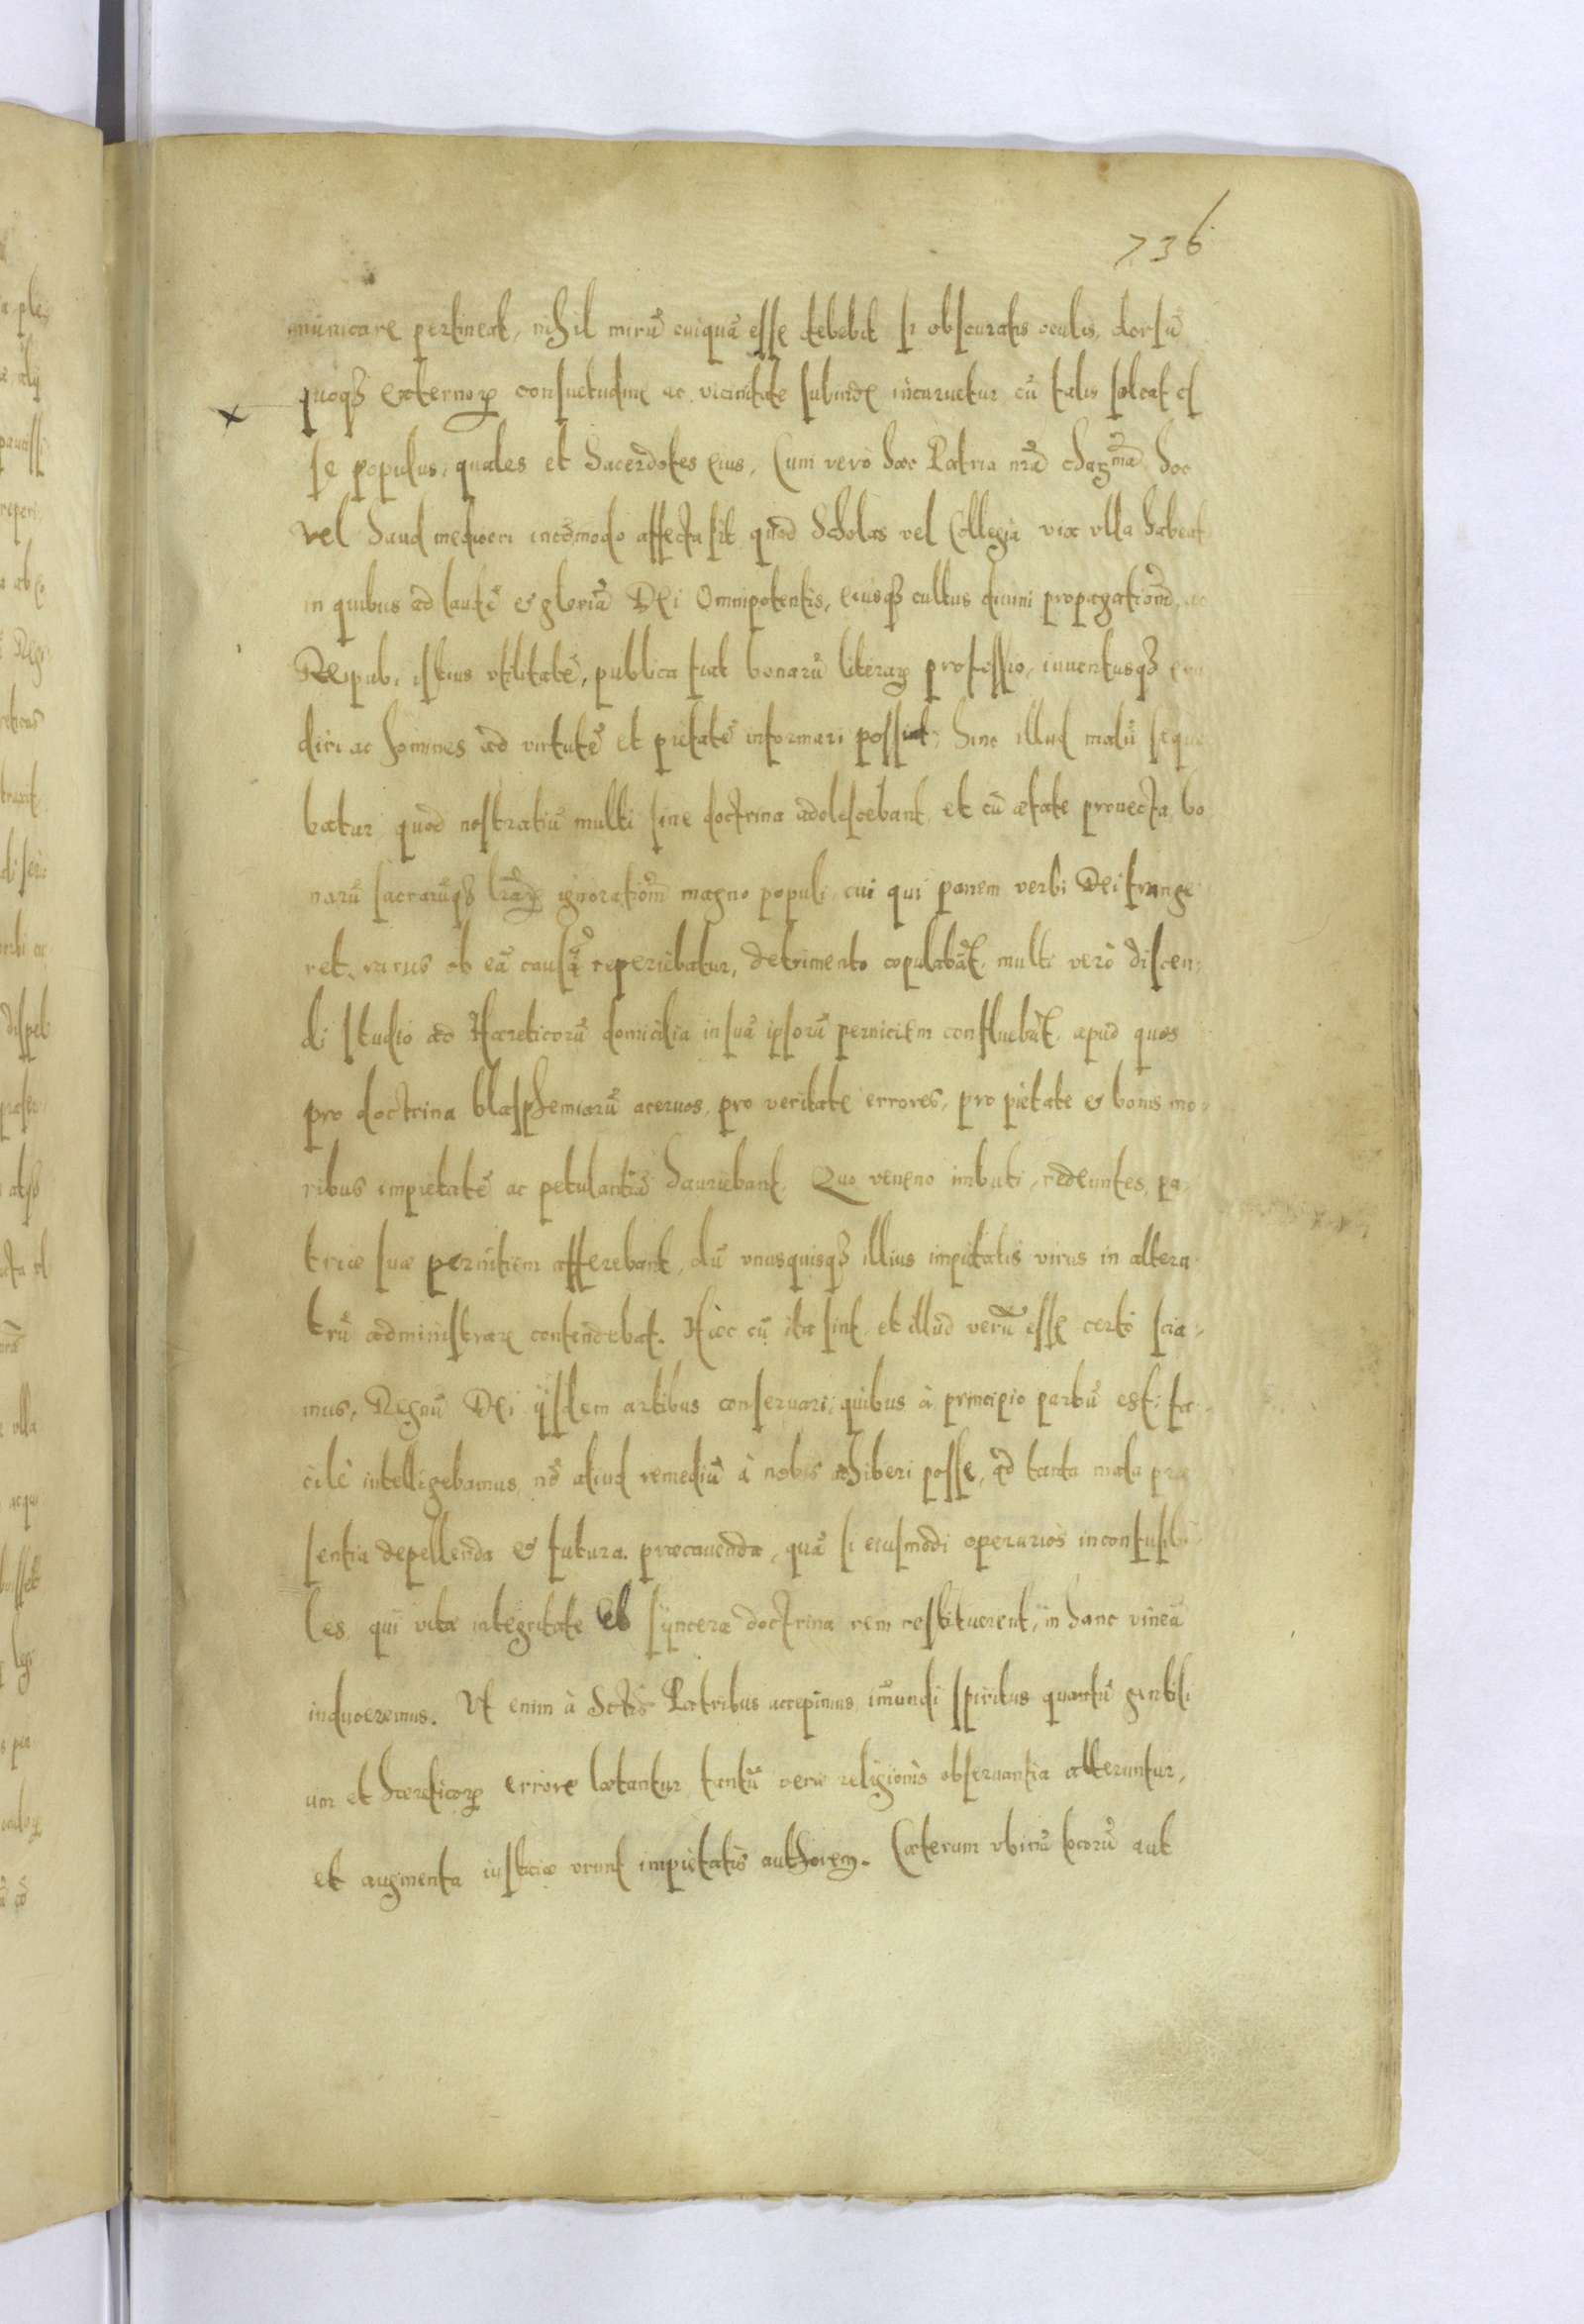 736
municare pertineat, nihil mirũ cuiquã esse debebit si obscuratis oculis, dorsũ
quoqȝ externoꝝ consuetudine ac vicinitate subinde incuruetur cũ talis soleat es
se populus, quales et Sacerdotes eius, Cum vero hæc Patria nr̃a chariss.ma hoc
vel haud mediocri incõmodo affecta sit quod Scholas vel Collegia vix vlla habeat
in quibus ad laudẽ & gloriã Dei Omnipotentis, eiusqȝ cultus diuini propagatiõnẽ, ac
Reipub. istius vtilitatẽ, publica fiat bonarũ literaꝝ professio, iuuentusqȝ eru
diri ac homines ad virtutẽ et pietatẽ informari possint, hinc illud malũ seque
batur quod nostratiũ multi sine doctrina adolescebant et cũ ætate prouecta bo
narũ sacrarũqȝ lr̃aꝝ ignoratiõnẽ magno populi, cui qui panem verbi Dei frange
ret rarus ob eã causã reperiebatur, detrimento copulabãt, multi verò discen-
di studio ad Hæreticorũ domicilia in suã ipsorũ perniciem confluebãt, apud quos
pro doctrina blasphemiarũ aceruos, pro veritate errores, pro pietate & bonis mo-
ribus impietatẽ ac petulantiã hauriebant. Quo veneno imbuti, redeuntes, pa-
triæ suæ pernitiem afferebant, dũ vnusquisqȝ illius impietatis virus in altera
trũ administrare contendebat. Hæc cũ ita sint, et illud verũ esse certò scia-
mus, Regnũ Dei ijsdem artibus conseruari, quibus à principio partũ est, fa-
cilè intelligebamus, nõ aliud remediũ à nobis adhiberi posse, ad tanta mala præ
sentia depellenda & futura præcauenda, quã si eiusmodi operarios inconfusibi-
les, qui vitæ integritate et syncera doctrina rem restituerent, in hanc vineã
induceremus. Vt enim à Sctis Patribus accepimus, im̃undi spiritus quantũ gentili
um et hæreticoꝝ errore lætantur, tantũ veræ religionis obseruantia atteruntur,
et augmenta iustitiæ vrunt impietatis authorem. Cæterum vbinã locorũ aut